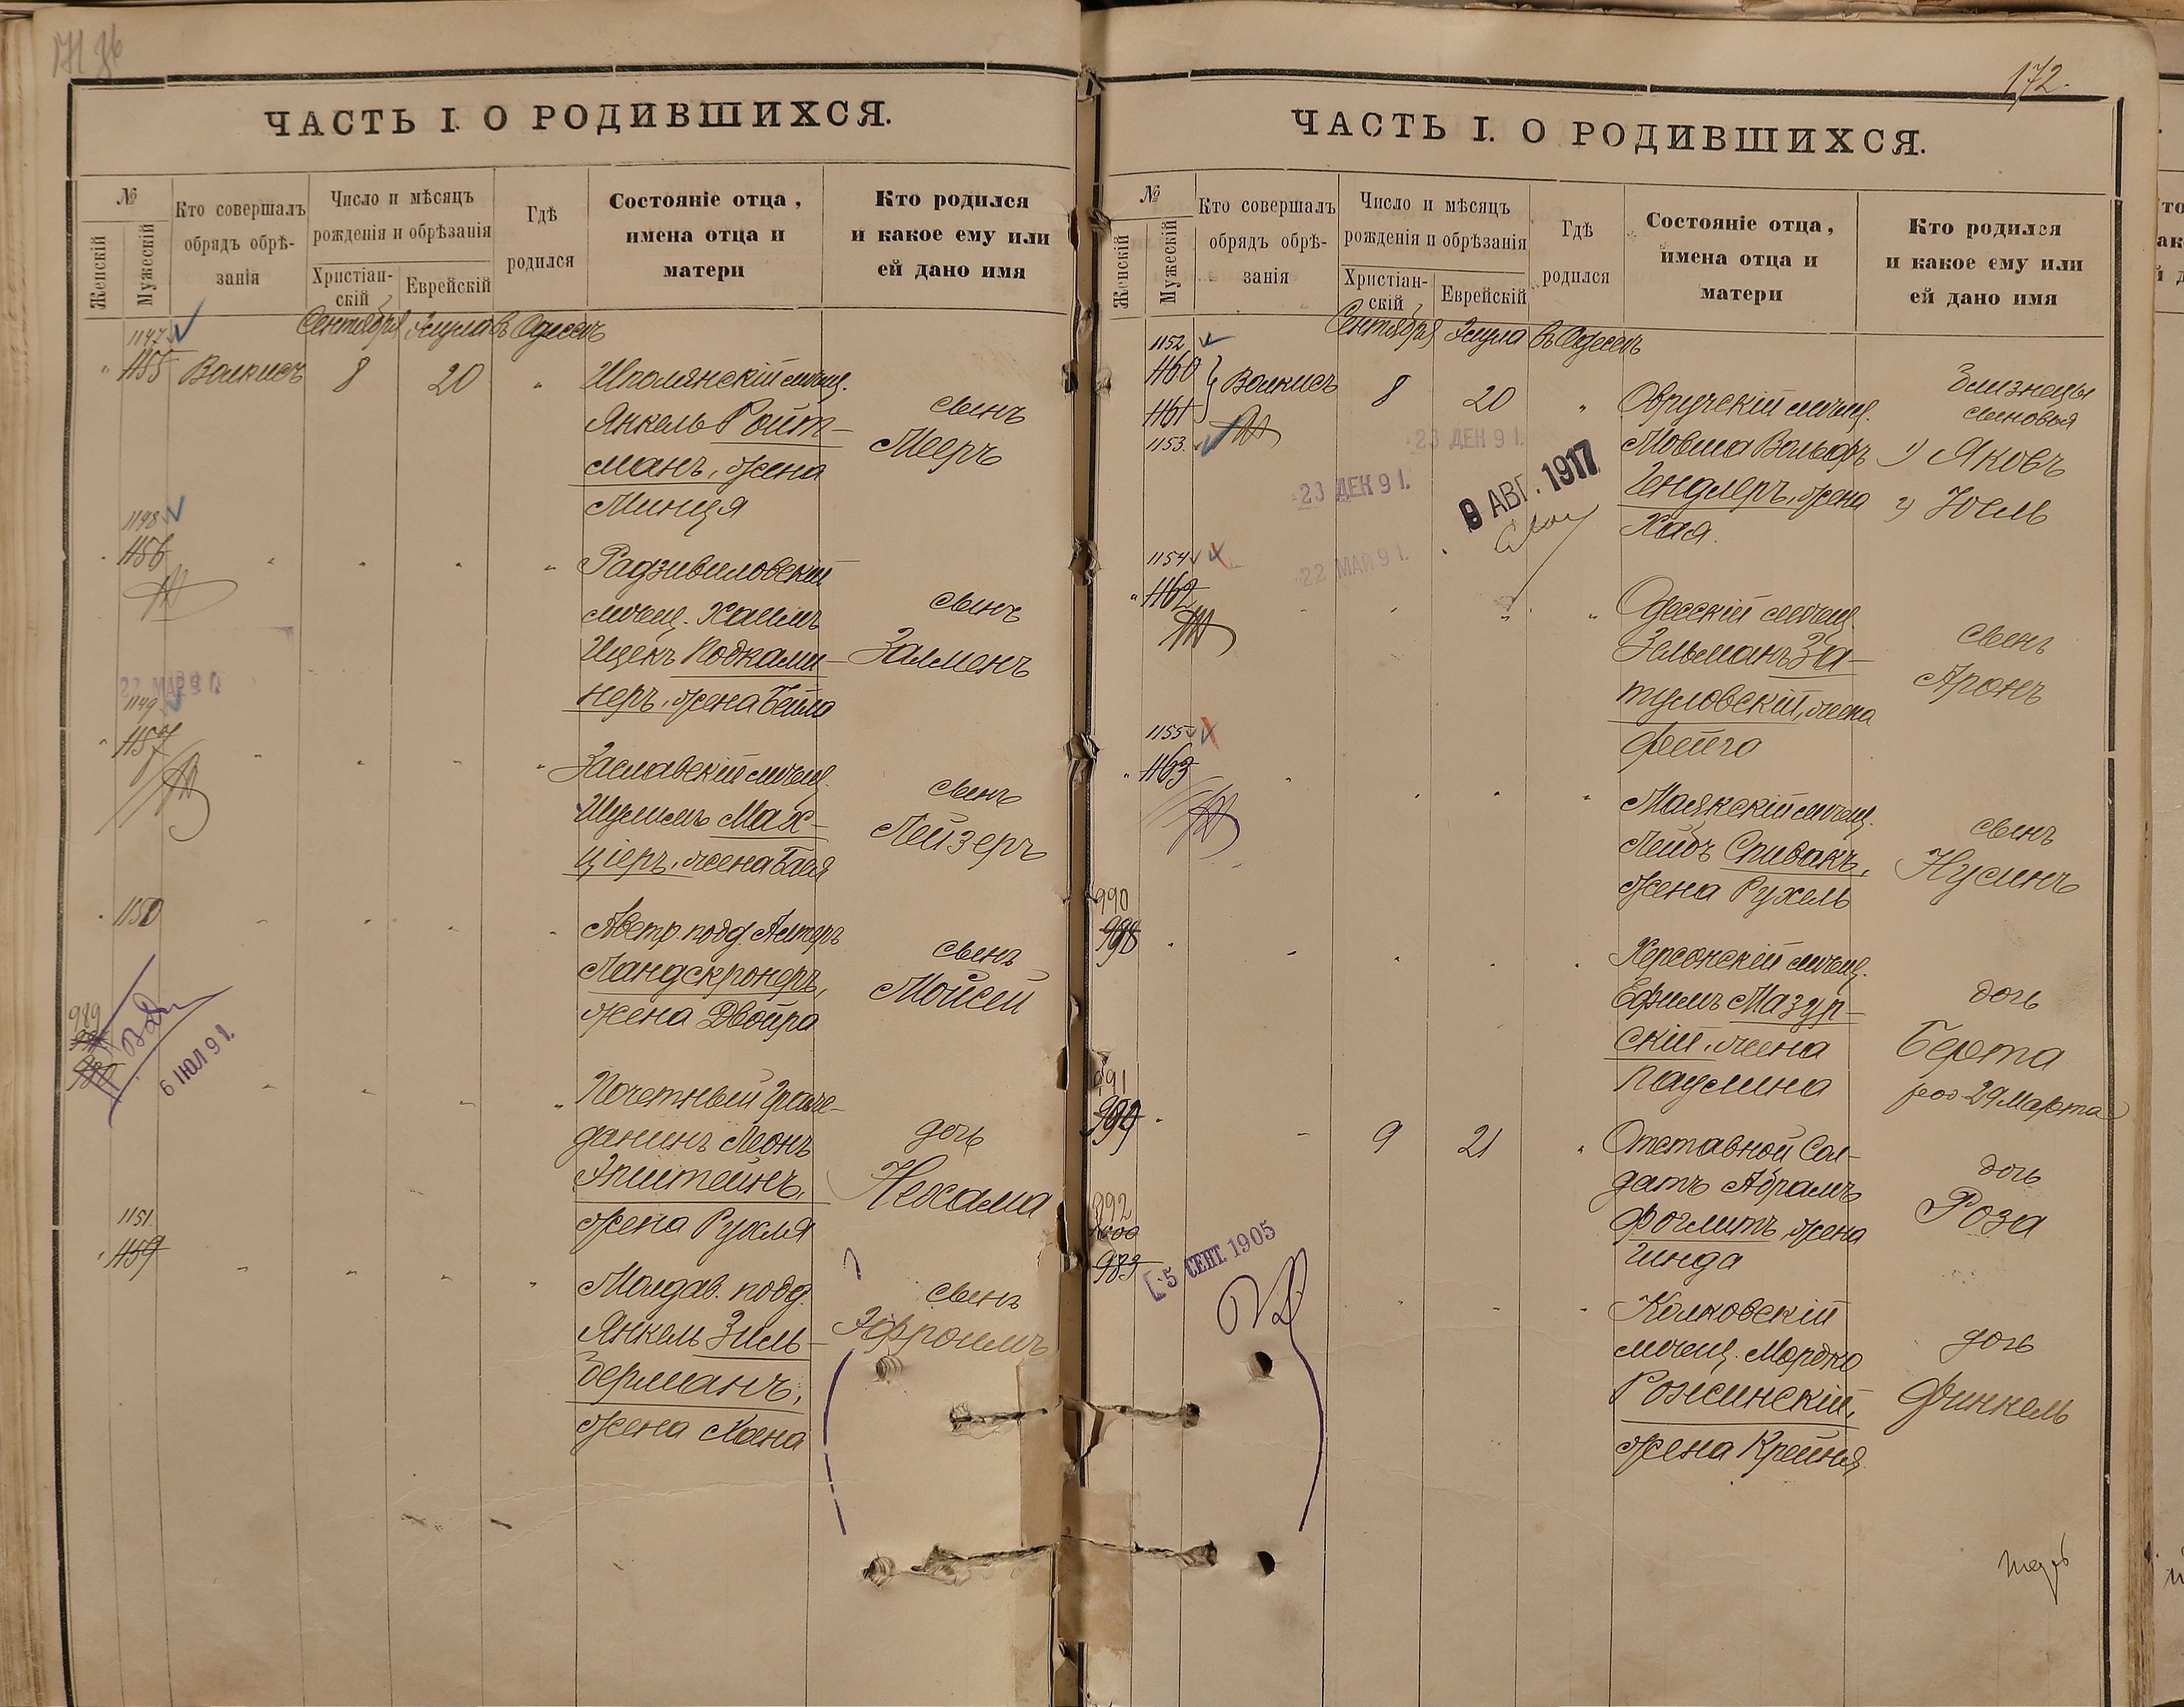 ЧАСТЬ I. О РОДИВШИХСЯ.
№
Женскій
Мужескій
Кто совершалъ
обрядъ обрѣ-
занія
Число и мѣсяцъ
рожденія и обрѣзанія
Христіан-
скій
Еврейскій
Гдѣ
родился
Состояніе отца,
имена отца и
матери
Кто родился
и какое ему или
ей дано имя
Сентября Элула въ Одессѣ
1147
1155 Волкисъ 8 20 " Шполянскій мѣщ.
ЯнкельРойт-
манъ, жена
Минця
сынъ
Мееръ
1148
1156
Радзивиловскій
мѣщ. Хаимъ
Ицекъ Подками-
неръ, жена Бейла
сынъ
Залменъ
1149
1157
Заславскій мѣщ.
Шулимъ Мах-
ціеръ, жена Бася
сынъ
Лейзеръ
1150
Австр. подд. Алтеръ
Ландскронеръ,
жена Двойра
сынъ
Мойсей
989
6 ІЮЛ 91.
Почетный граж-
данинъ Леонъ
Эпштейнъ,
жена Рухля
дочь
Нехама
1151
1159
Молдав. подд.
Янкель Зиль-
берманъ,
жена Хана
сынъ
Эфроимъ
172.
ЧАСТЬ I. О РОДИВШИХСЯ.
№
Женскій
Мужескій
Кто совершалъ
обрядъ обрѣ-
занія
Число и мѣсяцъ
рожденія и обрѣзанія
Христіан-
скій
Еврейскій
Гдѣ
родился
Состояніе отца,
имена отца и
матери
Кто родился
и какое ему или
ей дано имя
Сентября Элула въ Одессѣ
1152
1160
1161
1153
Волкисъ 8 20 " Овручскій мѣщ.
Мовша Вольфъ
Гендлеръ, жена
Хая.
Близнецы
сыновья
1) Яковъ
2) Юель
23 ДЕК 91.
23 ДЕК 91.
9 АВГ. 1917
22 МАЙ 91.
1154
1162
Одесскій мѣщ.
Зельманъ За-
туловскій, жена
Фейга
сынъ
Аронъ
1155
1163
Маякскій мѣщ.
Лейбъ Спивакъ,
жена Рухель
сынъ
Нусинъ
990
998
Херсонскій мѣщ.
Ефимъ Мазур-
скій, жена
Паулина
дочь
Берта
род. 29 Марта
991
999
9 21 " Отставной Сол-
датъ Абрамъ
жена
Гинда
дочь
Роза
992
1000
983
5 СЕНТ. 1905
Колковскій
мѣщ. Мордко
Рожинскій,
жена Крейня
дочь
Финкель